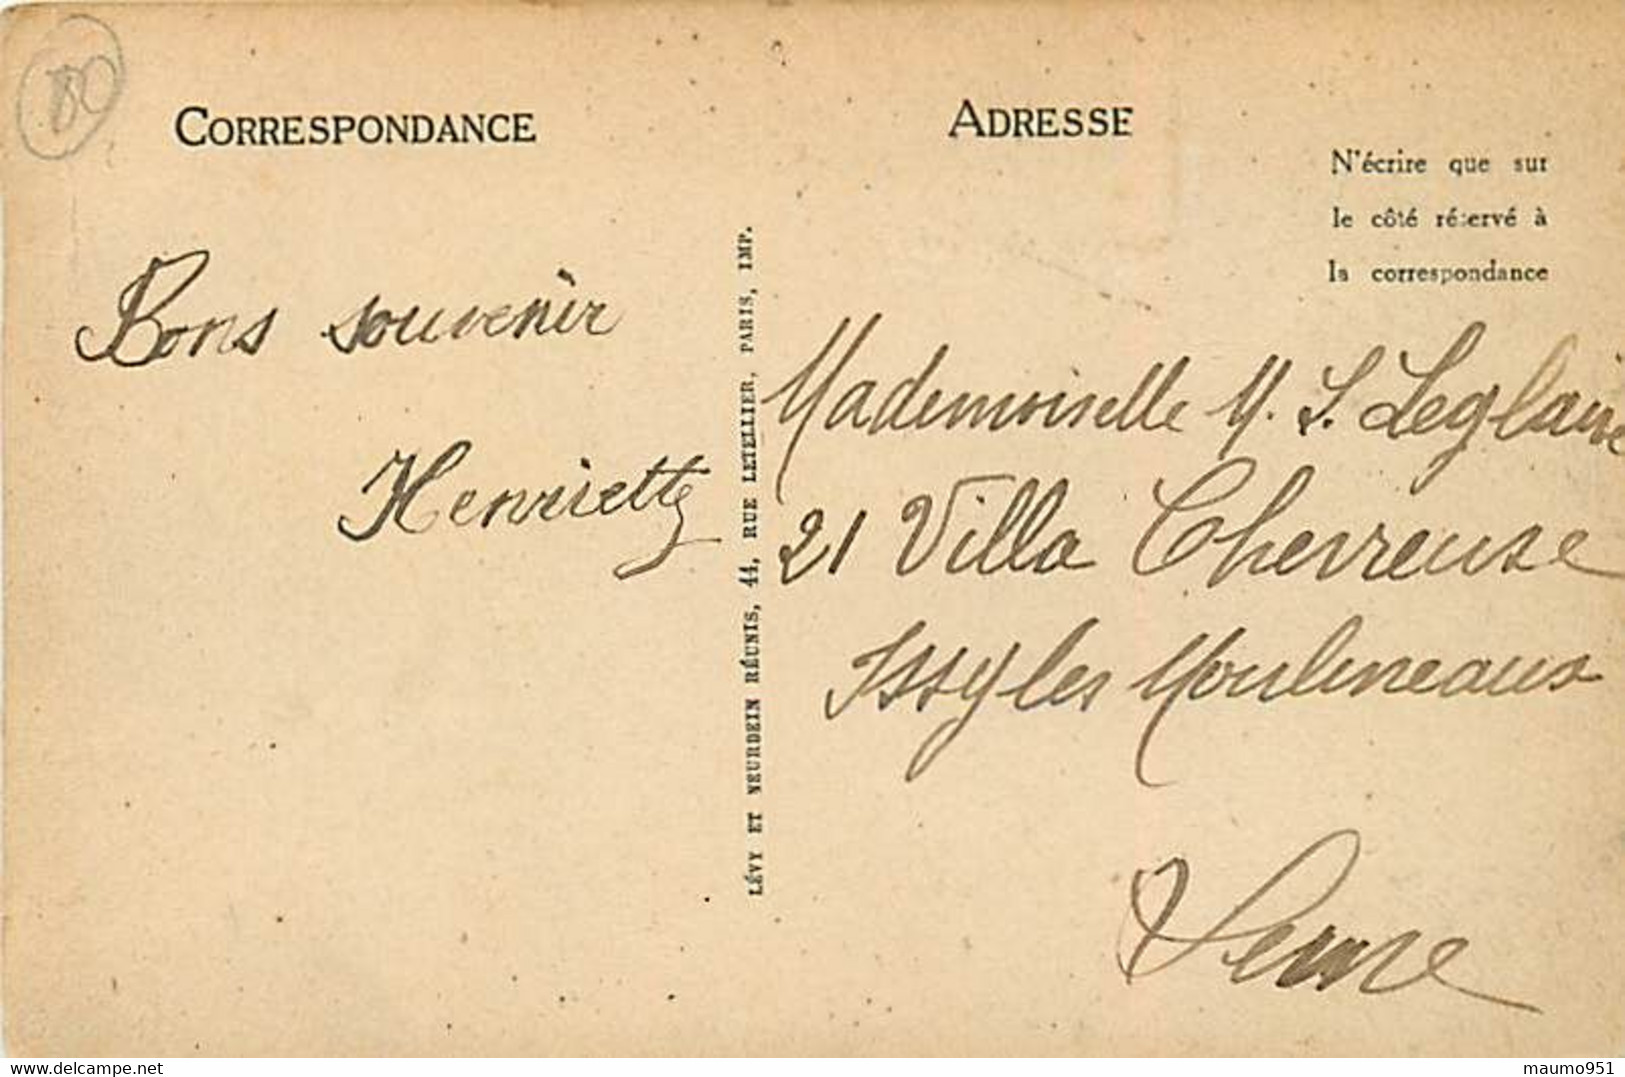 80
CORRESPONDANCE
Bons souvenir
Henriette
LÉVY ET NEURDEIN RÉUNIS, 44, RUE LETELLIER, PARIS, IMP.
ADRESSE
N'écrire que sur
le côté réservé à
la correspondance
Mademoiselle M. S. Leglaire
21 Villa Chevreuse
Issy les Moulineaux
Seine
www.delcampe.net
maumo951